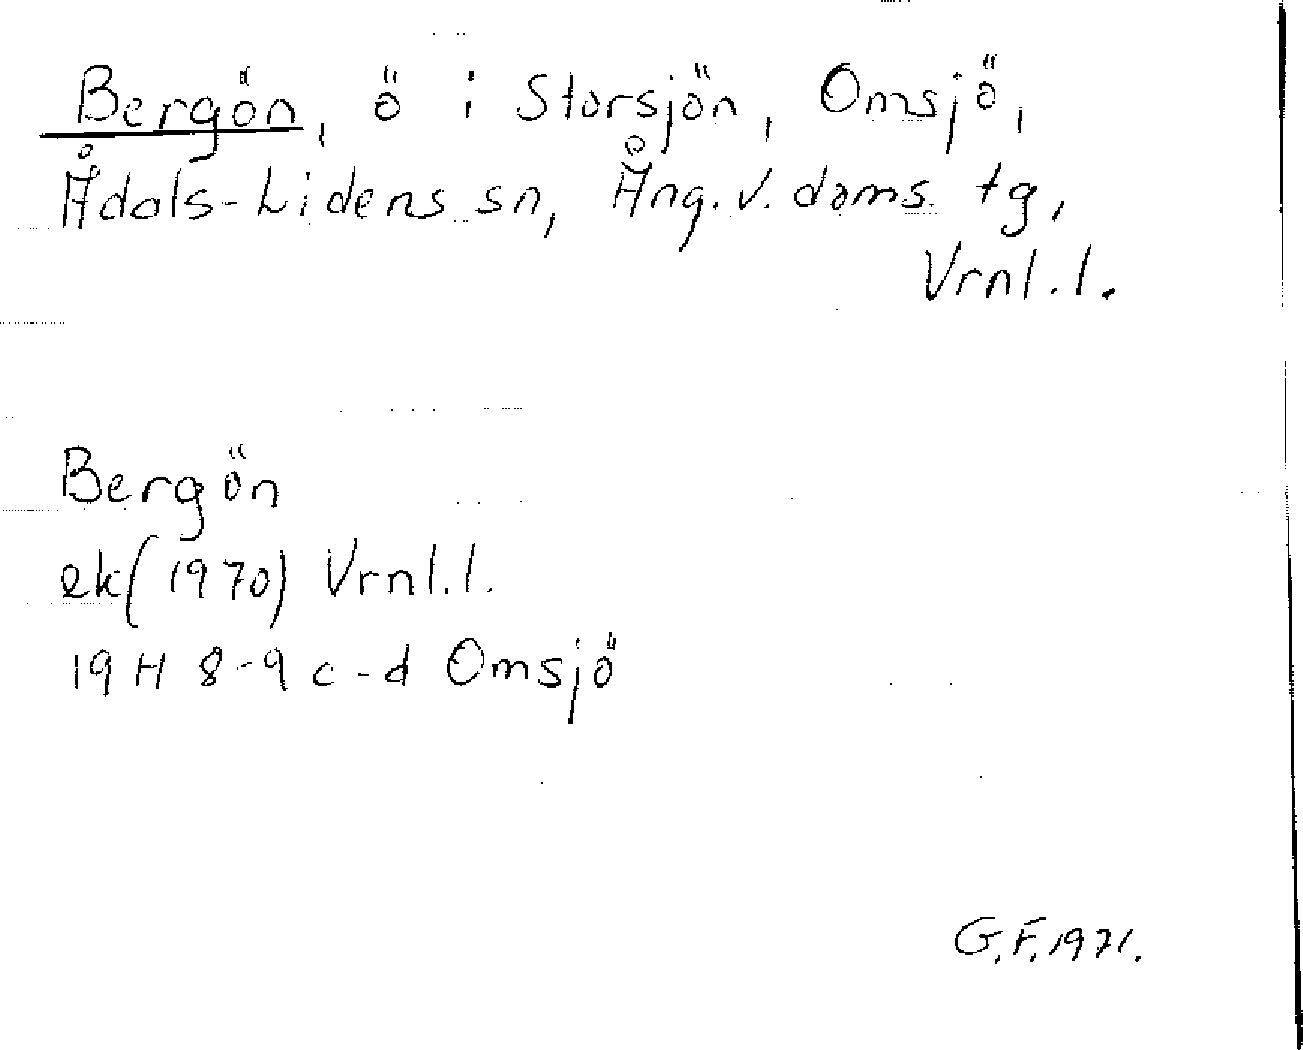 Bergön, ö i Storsjön, Omsjö,
Ådals-Lidens sn, Ång. v. doms. tg,
Vrnl. l.
Bergön
ek (1970) Vrnl. l.
19 H 8-9 c-d Omsjö
G. F. 1971.